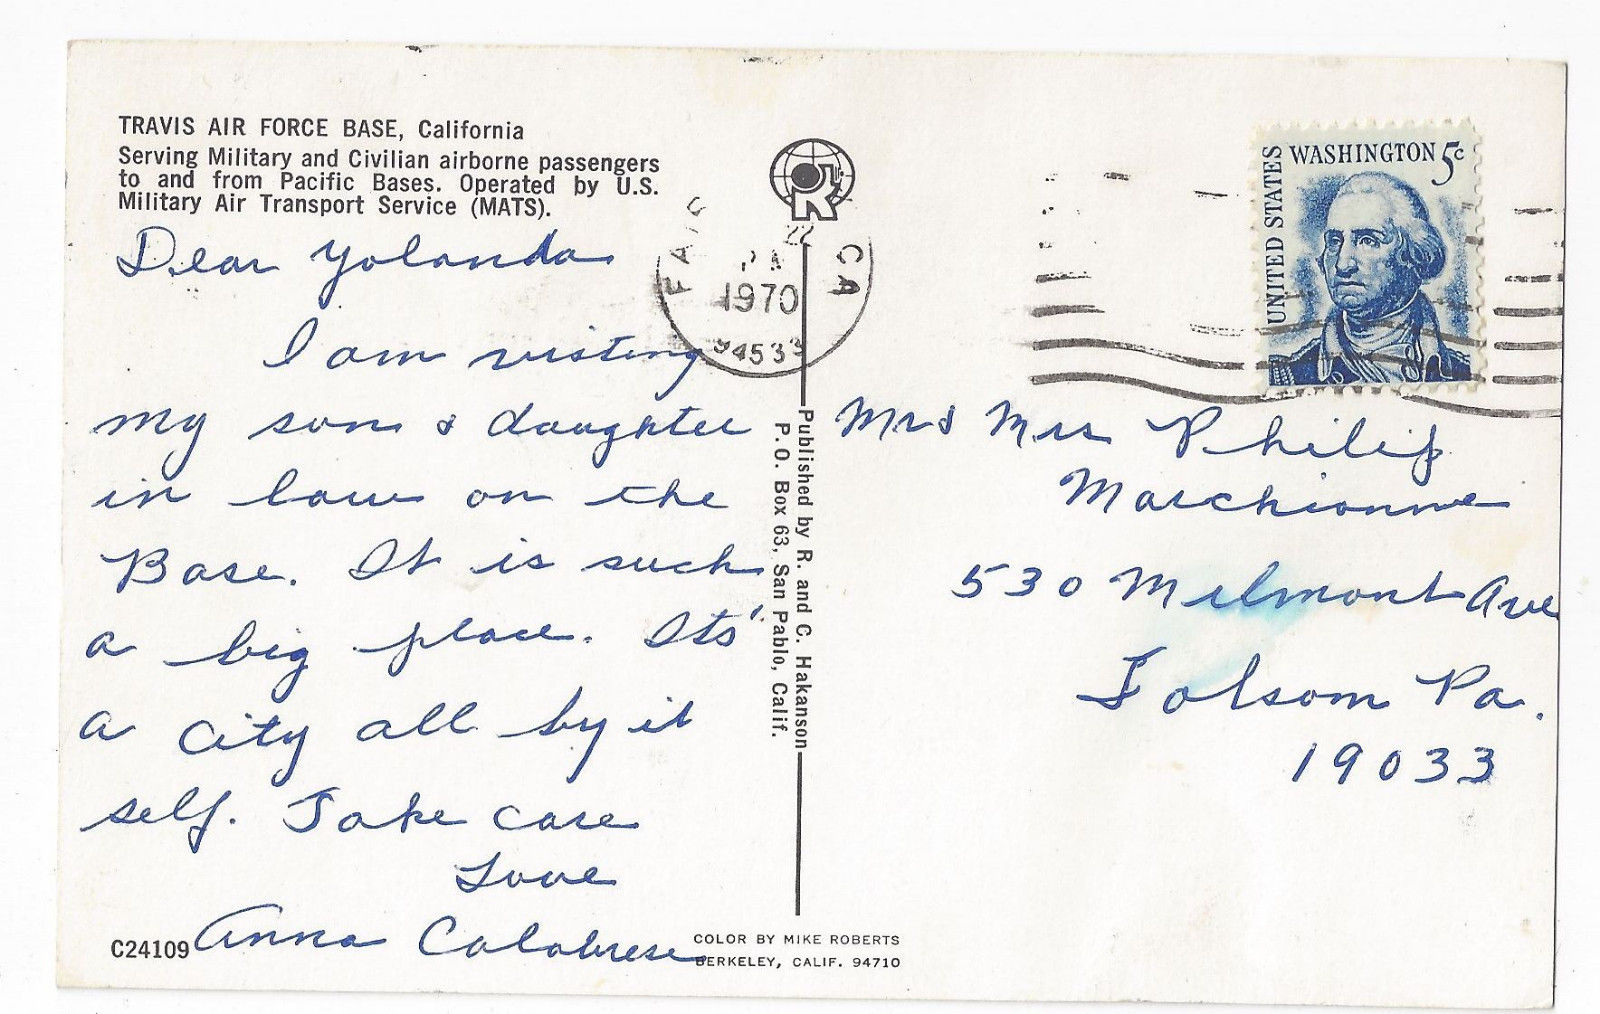 TRAVIS AIR FORCE BASE, California
Serving Military and Civilian airborne passengers
to and from Pacific Bases. Operated by U.S.
Military Air Transport Service (MATS).
Dear Yolanda
I am visting
my son & daughter
in law on the
Base. It is such
a big place. Its'
a city all by it
self. Take care
Love
Anna Calabrese
C24109
CA
1970
94533
Published by R. and C. Hakanson
P.O. Box 63, San Pablo, Calif.
COLOR BY MIKE ROBERTS
BERKELEY, CALIF. 94710
UNITED STATES
WASHINGTON 5c
Mr & Mrs Philip
Marchionne
530 Milmont Ave
Folsom Pa.
19033